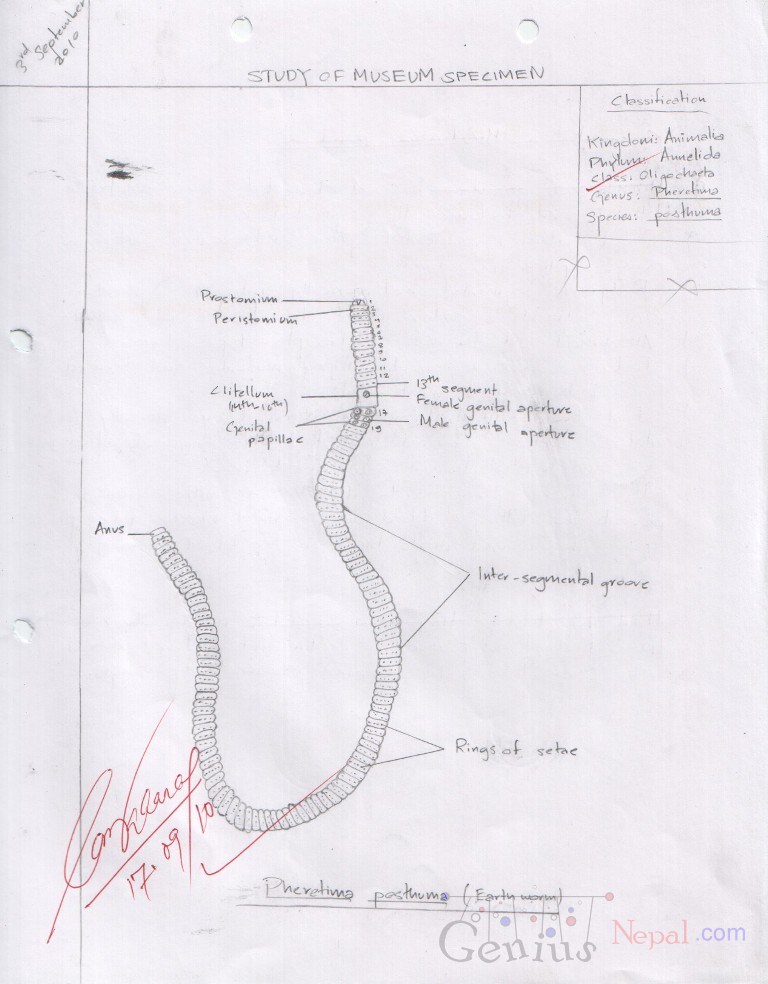 3rd September
2010
STUDY OF MUSEUM SPECIMEN
Classification
Kingdom: Animalia
Phylum: Annelida
Class: Oligochaeta
Genus: Pheretima
Species: posthuma
Prostomium
Peristomium
Clitellum
(14th-16th)
Genital
papillae
12
13th segment
Female genital aperture
17
Male genital aperture
19
Anus
Inter-segmental groove
Rings of setae
17.09/10
Pheretima posthuma (Earth worm)
Genius Nepal.com